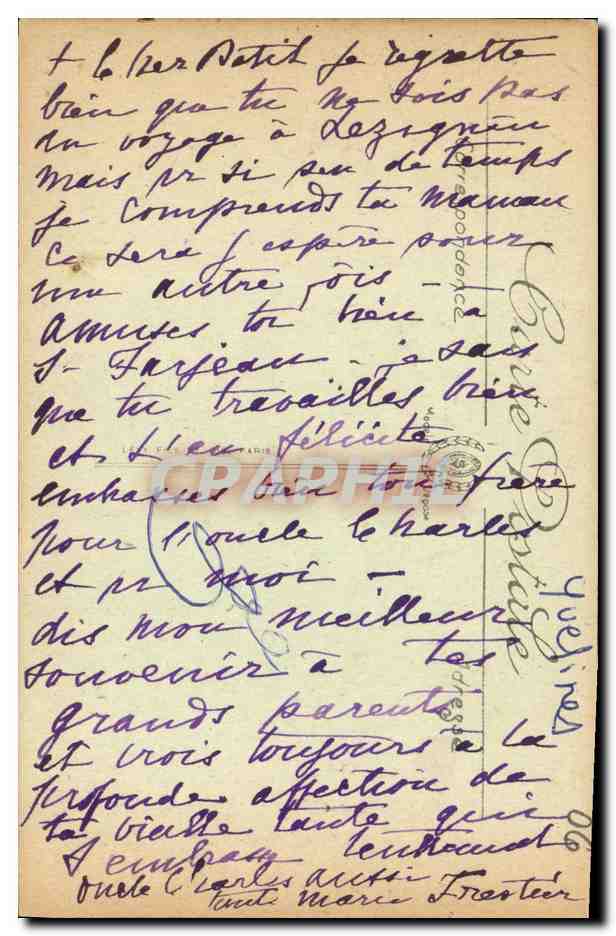 + le cher Petit je regrette
bien que tu ne sois pas
du voyage à Lezignan
mais pr si peu de temps
je comprends ta maman
ce sera j'espère pour
une autre fois -
Amuses toi bien à
St Farjeau - je sais
que tu travailles bien
et t'en félicite -
embrasses bien ton frère
pour l'oncle Charles
et pr moi -
dis mon meilleur
souvenir à tes
grands parents
et crois toujours à la
profonde affection de
ta vieille tante qui
t'embrasse
oncle Charles aussi
tante Marie
Carte Postale
Correspondance
Adresse
PARIS
CPAPHIL
Yvelines
06